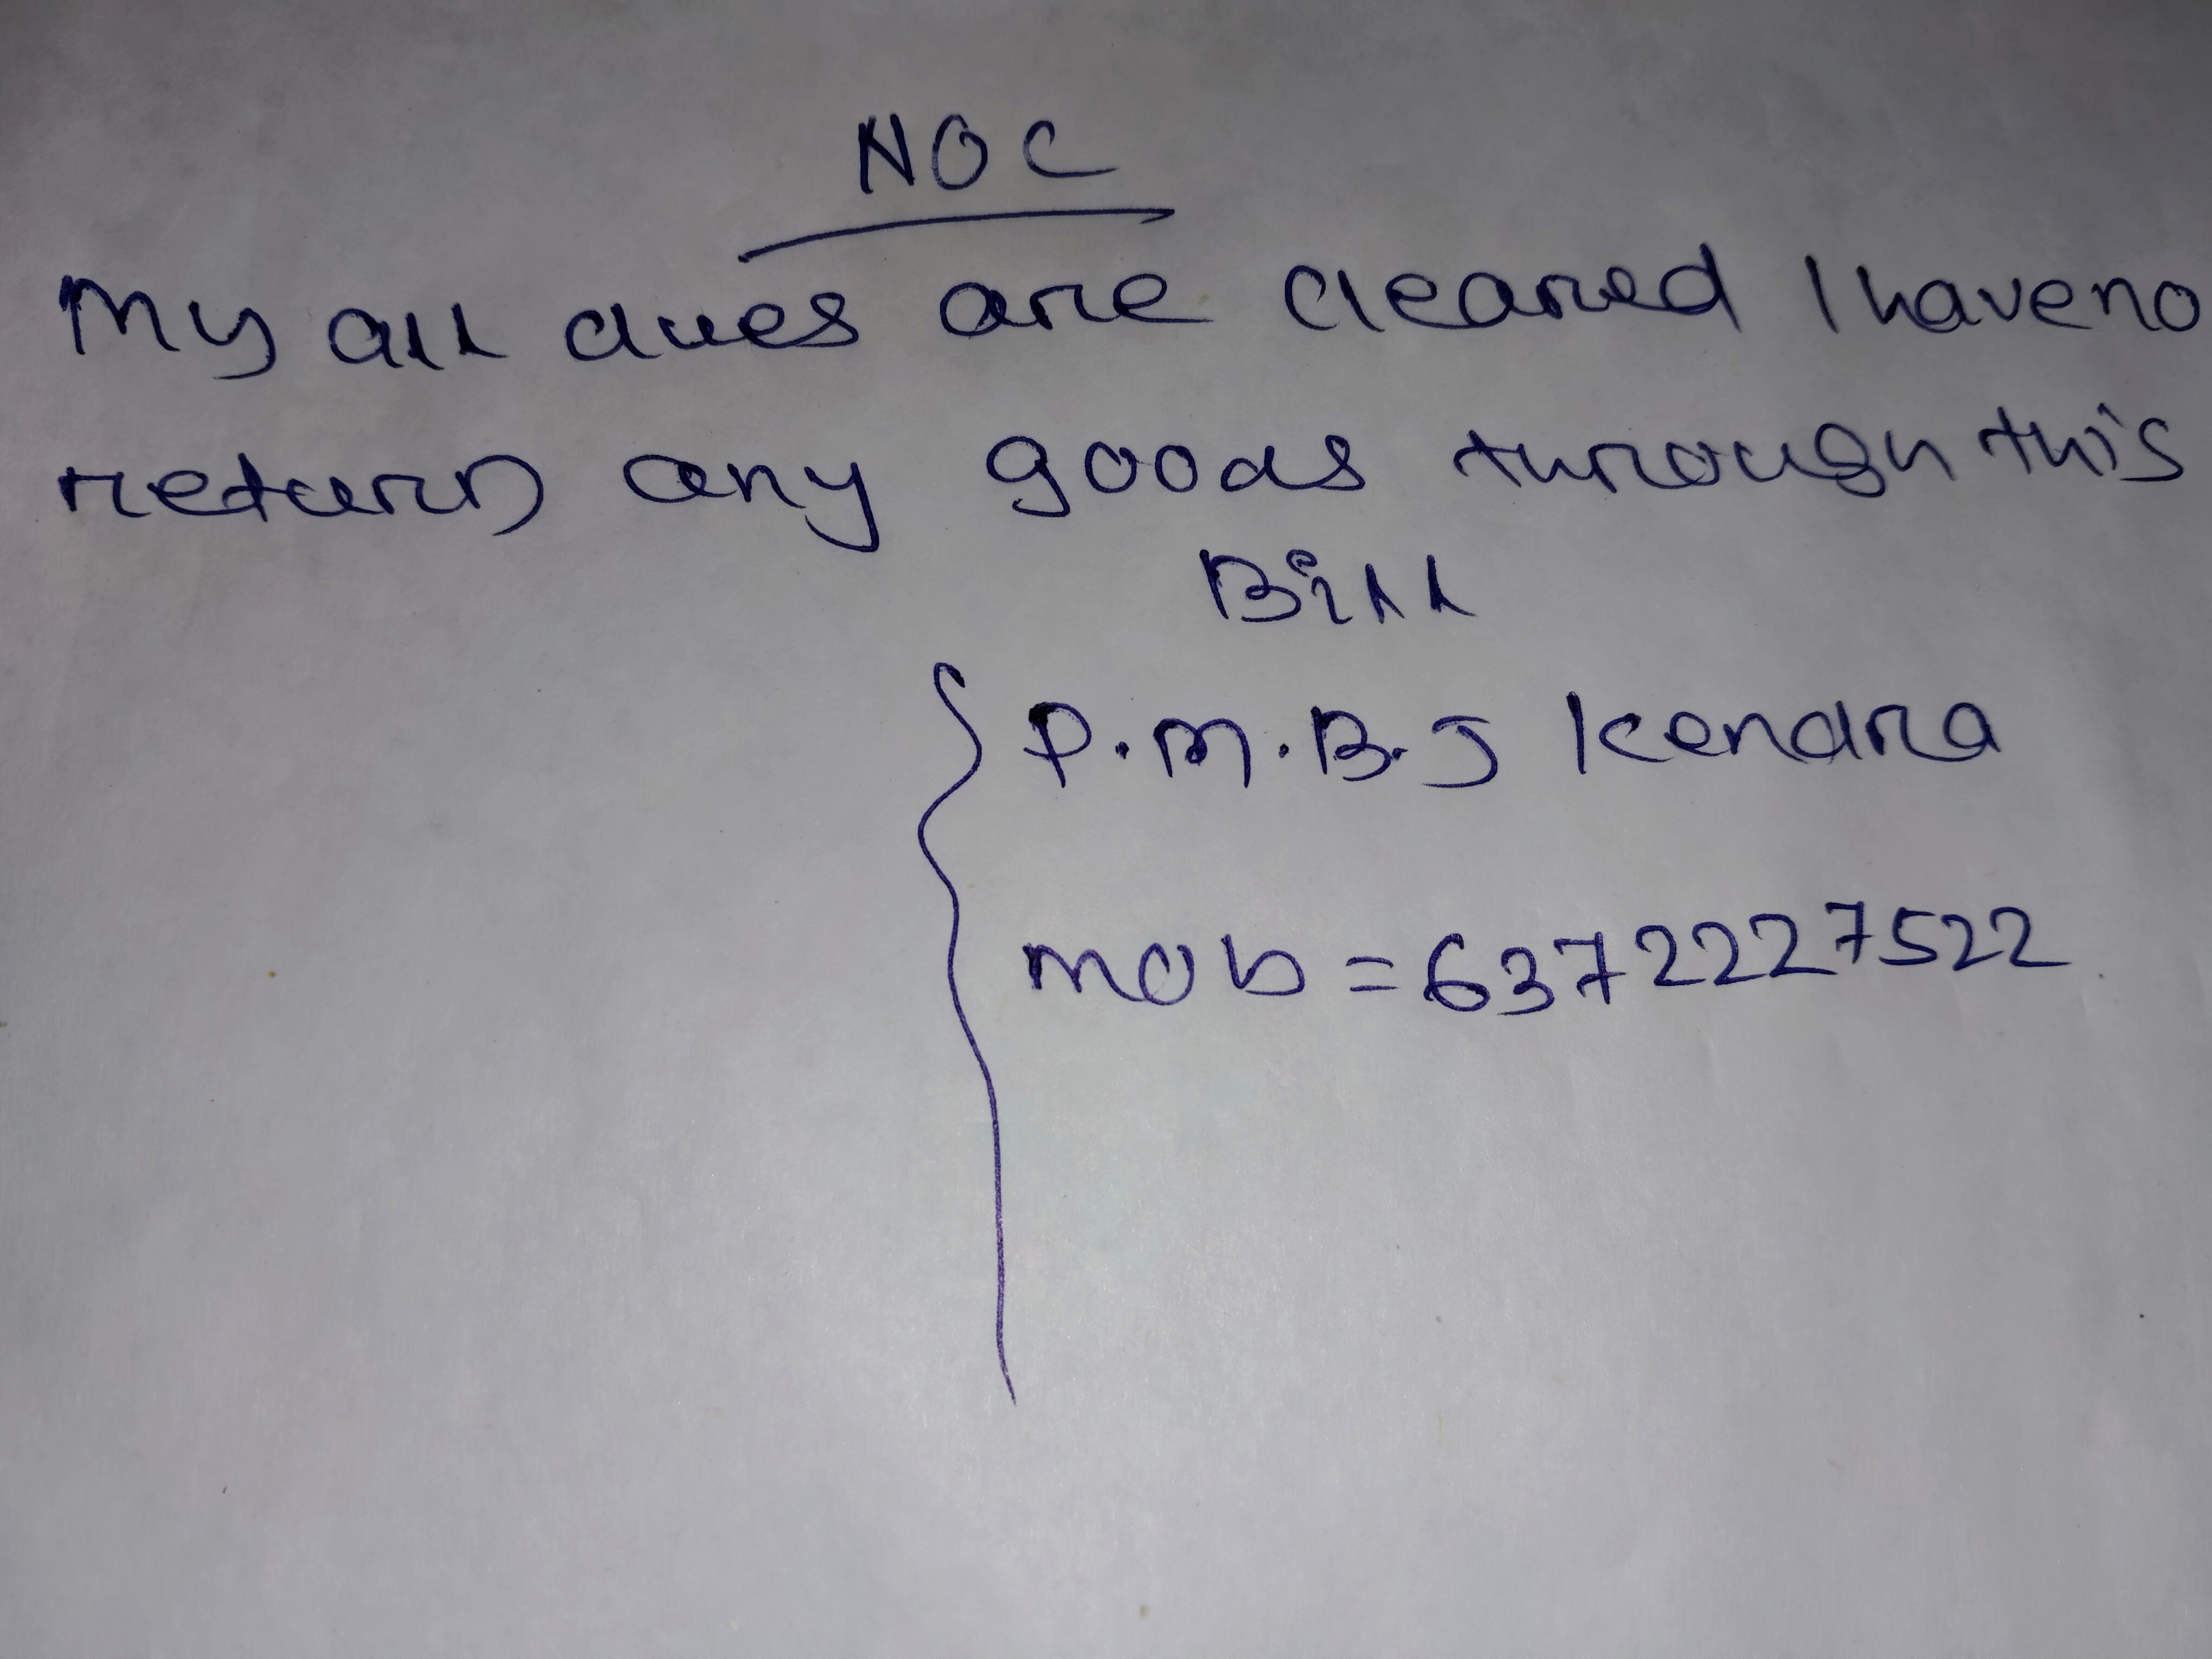 NOC
My all dues are cleared I have no
return any goods through this
Bill
P.M.B.J Kendra
mob = 63722227522